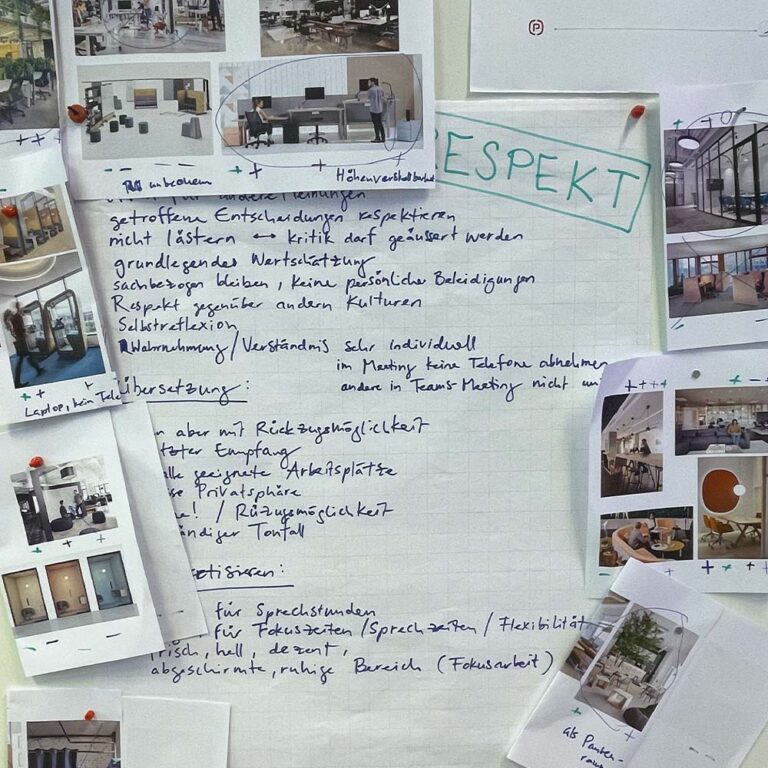 P
RESPEKT
unbequem
Höhenverstellbarkeit
für andere Meinungen
getroffene Entscheidungen respektieren
nicht lästern ↔ kritik darf geäussert werden
grundlegendes Wertschätzung
sachbezogen bleiben, keine persönliche Beleidigungen
Respekt gegenüber andern Kulturen
Selbstreflexion
Wahrnehmung / Verständnis sehr individuell
im Meeting keine Telefone abnehmen
andere in Teams-Meeting nicht
Laptop, kein Tele
Übersetzung:
n aber mit Rückzugsmöglichkeit
tzter Empfang
lle geeignete Arbeitsplätze
se Privatsphäre
e! / Rüzugsmöglichkeit
ändiger Tonfall
etisieren:
für Sprechstunden
für Fokuszeiten / Sprechzeiten / Flexibilität
frisch, hell, dezent,
abgeschirmte, ruhige Bereich (Fokusarbeit)
als Pausen-
raum